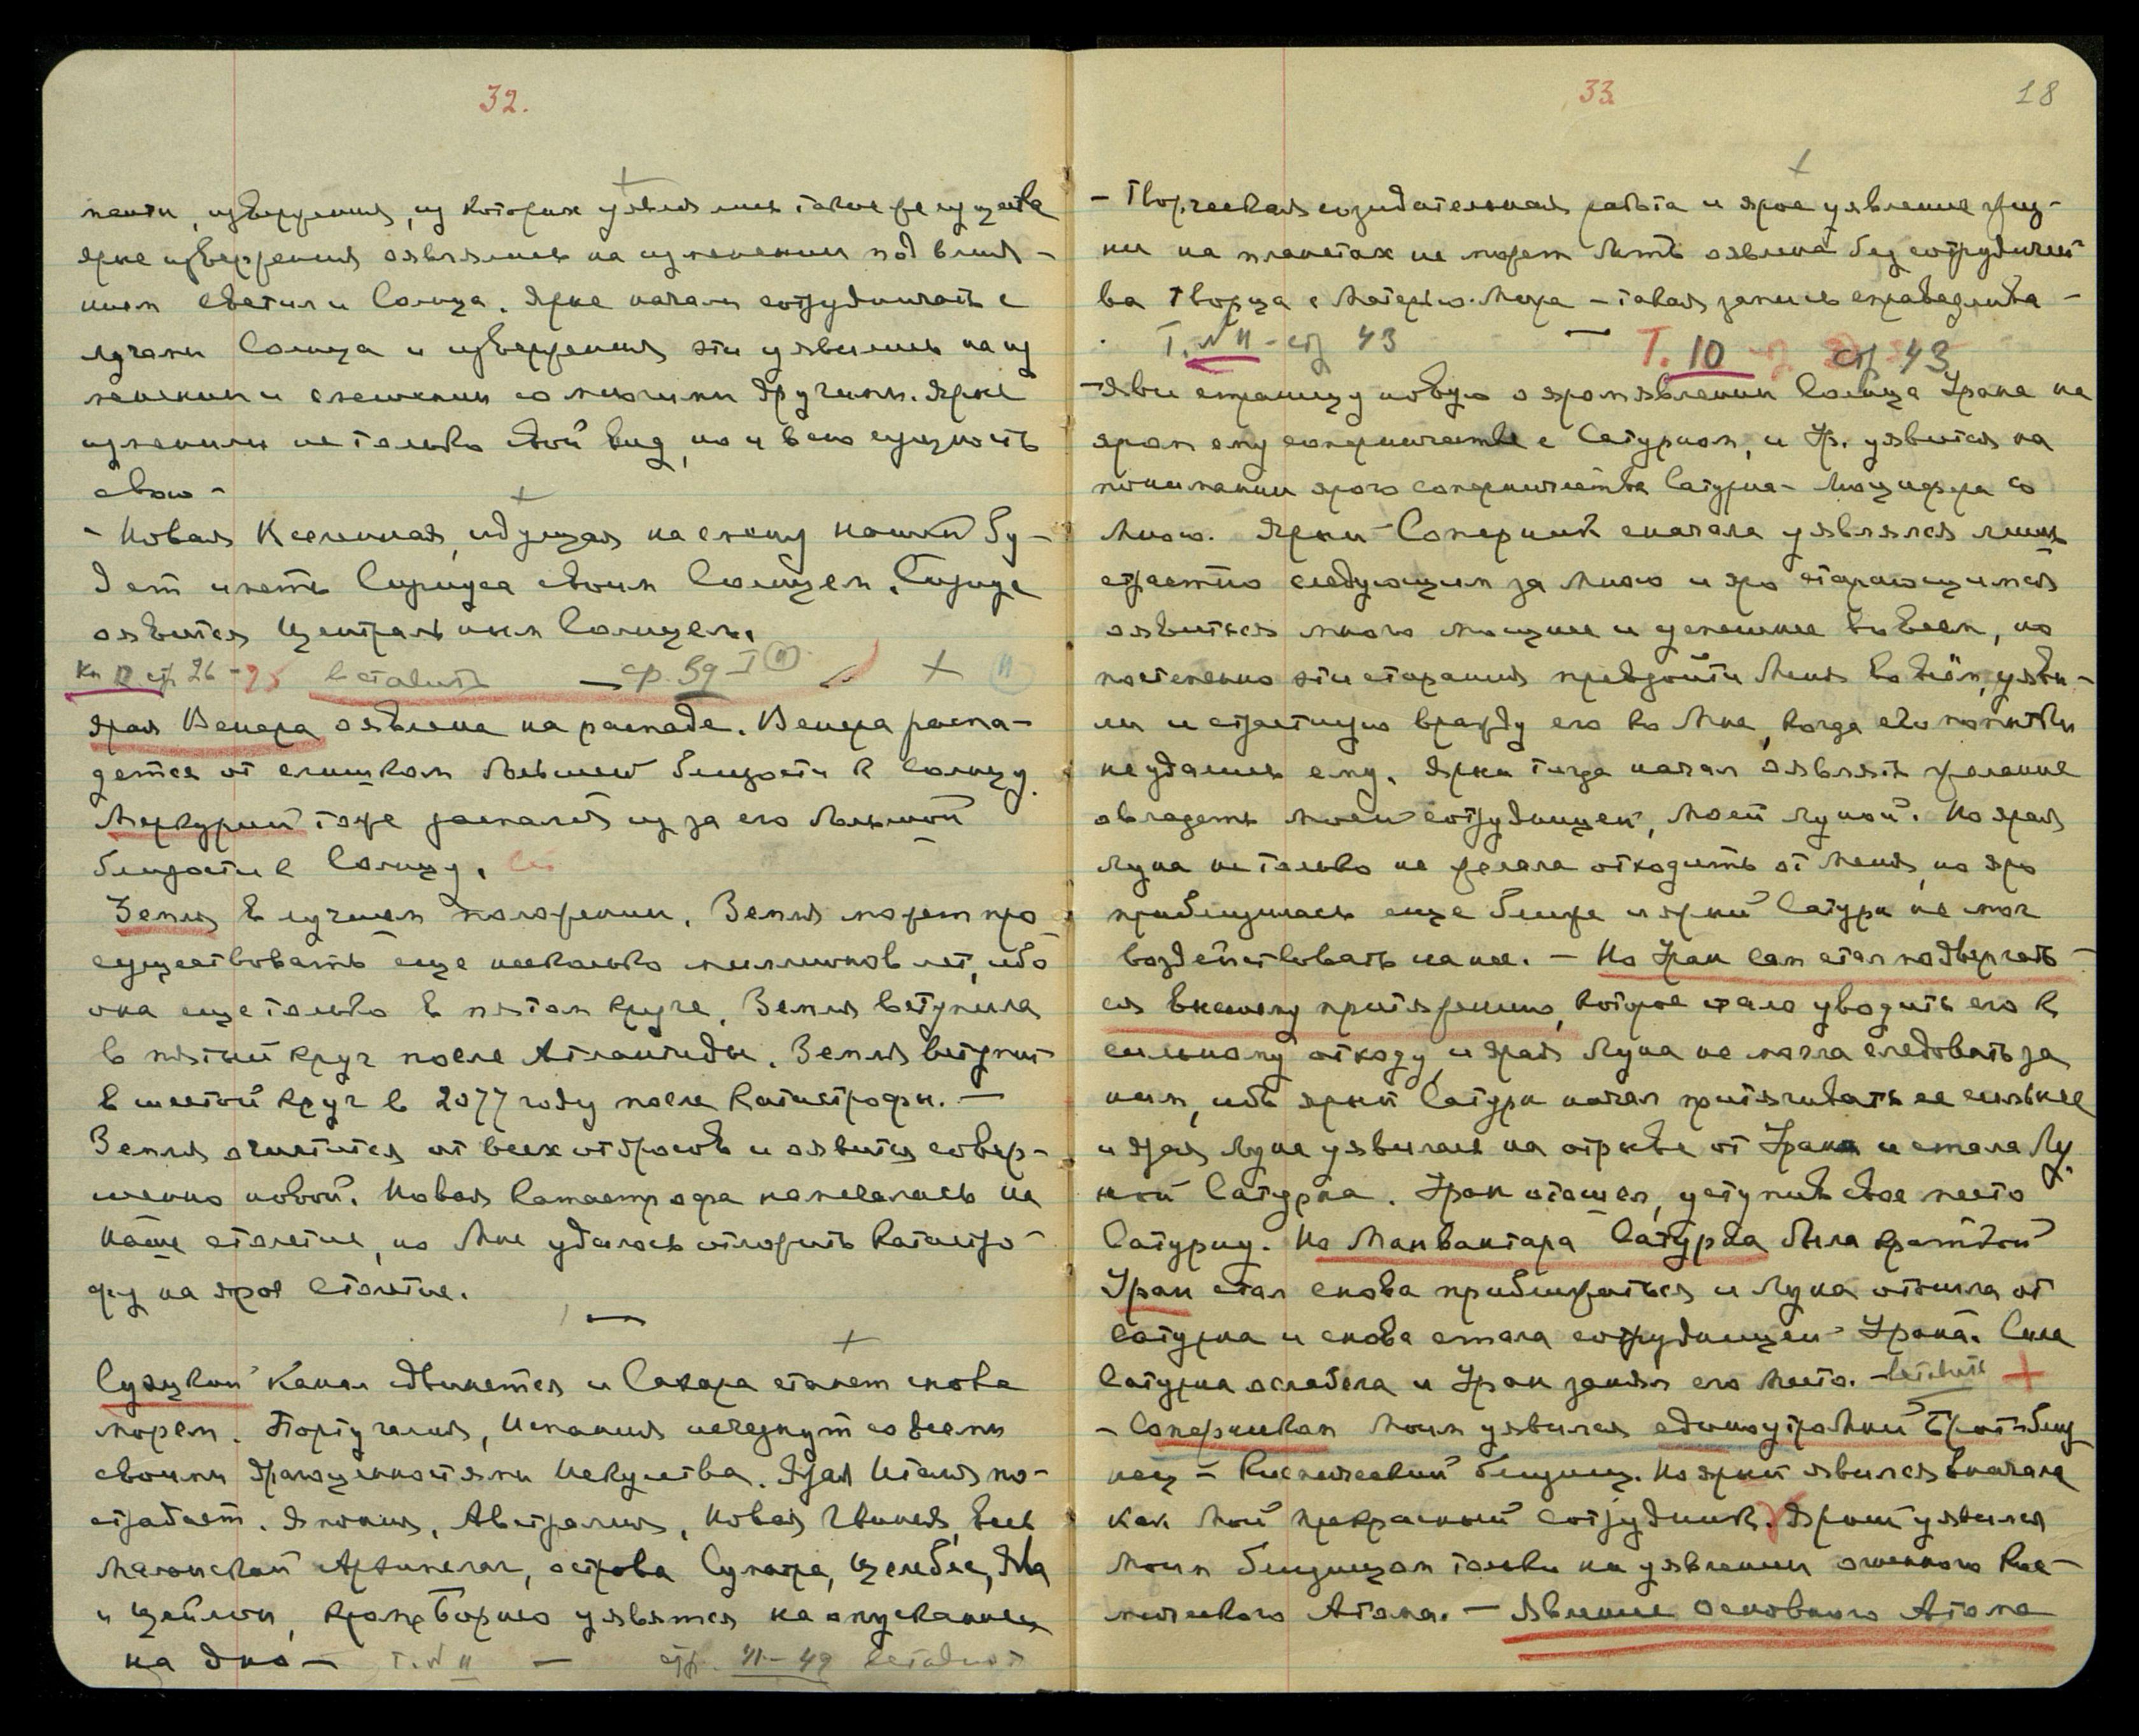 32.
извержения, из которых уявились такие
ярые извержения оявлялись на изменении под влия-
нием светил и Солнца. Ярые начали сотрудничать с
лучами Солнца и извержения эти уявились на из
менении и смешении со многими другими. Ярые
изменили не только свой вид, но и всю сущность
свою -
- Новая Вселенная, идущая на смену нашей бу-
дет иметь Сириуса своим Солнцем. Сириус
оявится Центральным Солнцем.
Кн стр 26 - 25 вставить — ср. 39 - I (11) + 11
Ярая Венера оявлена на распаде. Венера распа-
дется от слишком большой близости к Солнцу.
Меркурий тоже распался из за его большой
близости к Солнцу.
Земля в лучшем положении. Земля может про
существовать еще несколько миллионов лет, ибо
она еще только в пятом круге. Земля вступила
в пятый круг после Атлантиды. Земля вступит
в шестой круг в 2077 году после Катастрофы. —
Земля очистится от всех отбросов и оявится совер-
шенно новой. Новая Катастрофа намечалась на
наше столетие, но Мне удалось отложить Катастро-
фу на ярое столетие.
—
Суэцкий Канал сдвинется и Сахара станет снова
морем. Португалия, Испания исчезнут со всеми
своими драгоценностями Искусства. Ярая Италия по-
страдает. Япония, Австралия, Новая Гвинея, весь
Малайский Архипелаг, острова Суматра, Целебес, Ява
и Цейлон, кроме Борнео уявятся на опускании
на дно — т. N 11 — стр. 41-49 вставить
33
18
- Творческая созидательная работа и ярое уявление жиз-
ни на планетах не может быть оявлена без сотрудничест
ва Творца с Матерью Мира - такая запись справедлива -
Т. N 11 - стр 43 — Т. 10 стр 43
- Яви страницу новую о яром явлении Солнца Урана на
яром ему соперничестве с Сатурном, и Ур. уявится на
понимании ярого соперничества Сатурна - Люцифера со
Мною. Ярый Соперник сначала уявлялся лишь
страстно следующим за Мною и яро старающимся
оявиться много мощнее и успешнее во всем, но
постепенно эти старания превзойти Меня во всём, уяви-
ли и страстную вражду его ко Мне, когда его попытки
не удались ему. Ярый тогда начал оявлять желание
овладеть моей сотрудницей, Моей Луной. Но ярая
Луна не только не желала отходить от Меня, но яро
приблизилась еще ближе и ярый Сатурн не мог
воздействовать на нее. — Но Уран сам стал подвергать-
ся внешнему притяжению, которое стало уводить его к
сильному отходу, и ярая Луна не могла следовать за
ним, ибо ярый Сатурн начал притягивать ее сильнее
и ярая Луна уявилась на отрыве от Урана и стала Лу
ной Сатурна. Уран отошел, уступив свое место
Сатурну. Но Манвантара Сатурна была краткой
Уран стал снова приближаться и Луна отошла от
Сатурна и снова стала сотрудницей Урана. Сила
Сатурна ослабела и Уран занял его место. - вставить +
- Соперником Моим уявился единоутробный Брат-близ
нец - Космический близнец. Но ярый явился вначале
как Мой прекрасный сотрудник. Ярый уявился
Моим близнецом только на уявлении огненного Кос-
мического Атома. — Явление основного Атома